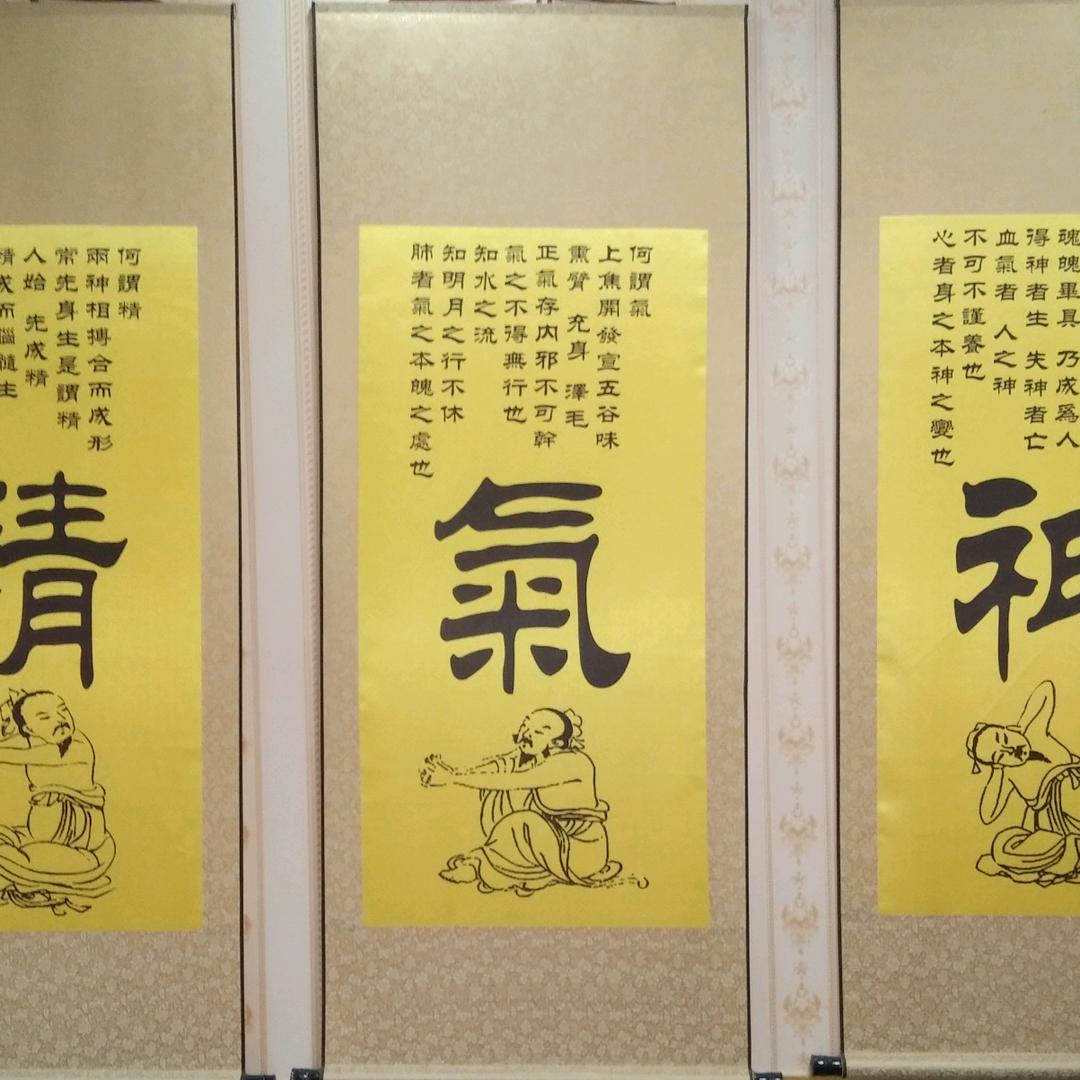 何謂精
兩神相搏合而成形
常先身生是謂精
人始 先成精
精成而腦髓生
精
何謂氣
上焦開發宣五谷味
熏臂 充身 澤毛
正氣存内邪不可幹
氣之不得無行也
知水之流
知明月之行不休
肺者氣之本魄之處也
氣
魂魄畢具 乃成爲人
得神者生 失神者亡
血氣者 人之神
不可不謹養也
心者身之本神之變也
神